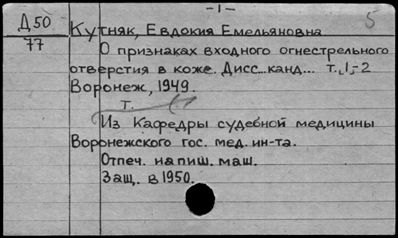 -1-
5
Д50
77
Кутняк, Евдокия Емельяновна
О признаках входного огнестрельного
отверстия в коже. Дисс...канд... т.,1,-2
Воронеж, 1949.
т.
Из Кафедры судебной медицины
Воронежского гос. мед. ин-та.
Отпеч. на пиш. маш.
Защ. в 1950.